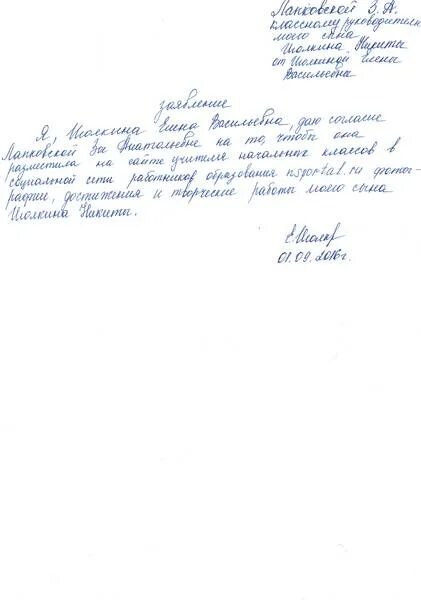 Лапковской З.А.
классному руководителю
моего сына
Иолкина Никиты
от Иолкиной Елены
Васильевны
заявление
Я, Иолкина Елена Васильевна, даю согласие
Лапковской Зое Анатольевне на то, чтобы она
разметила на сайте учителя начальных классов в
социальной сети работников образования nsportal.ru фотог-
рафии, достижения и творческие работы моего сына
Иолкина Никиты.
01.09.2016г.